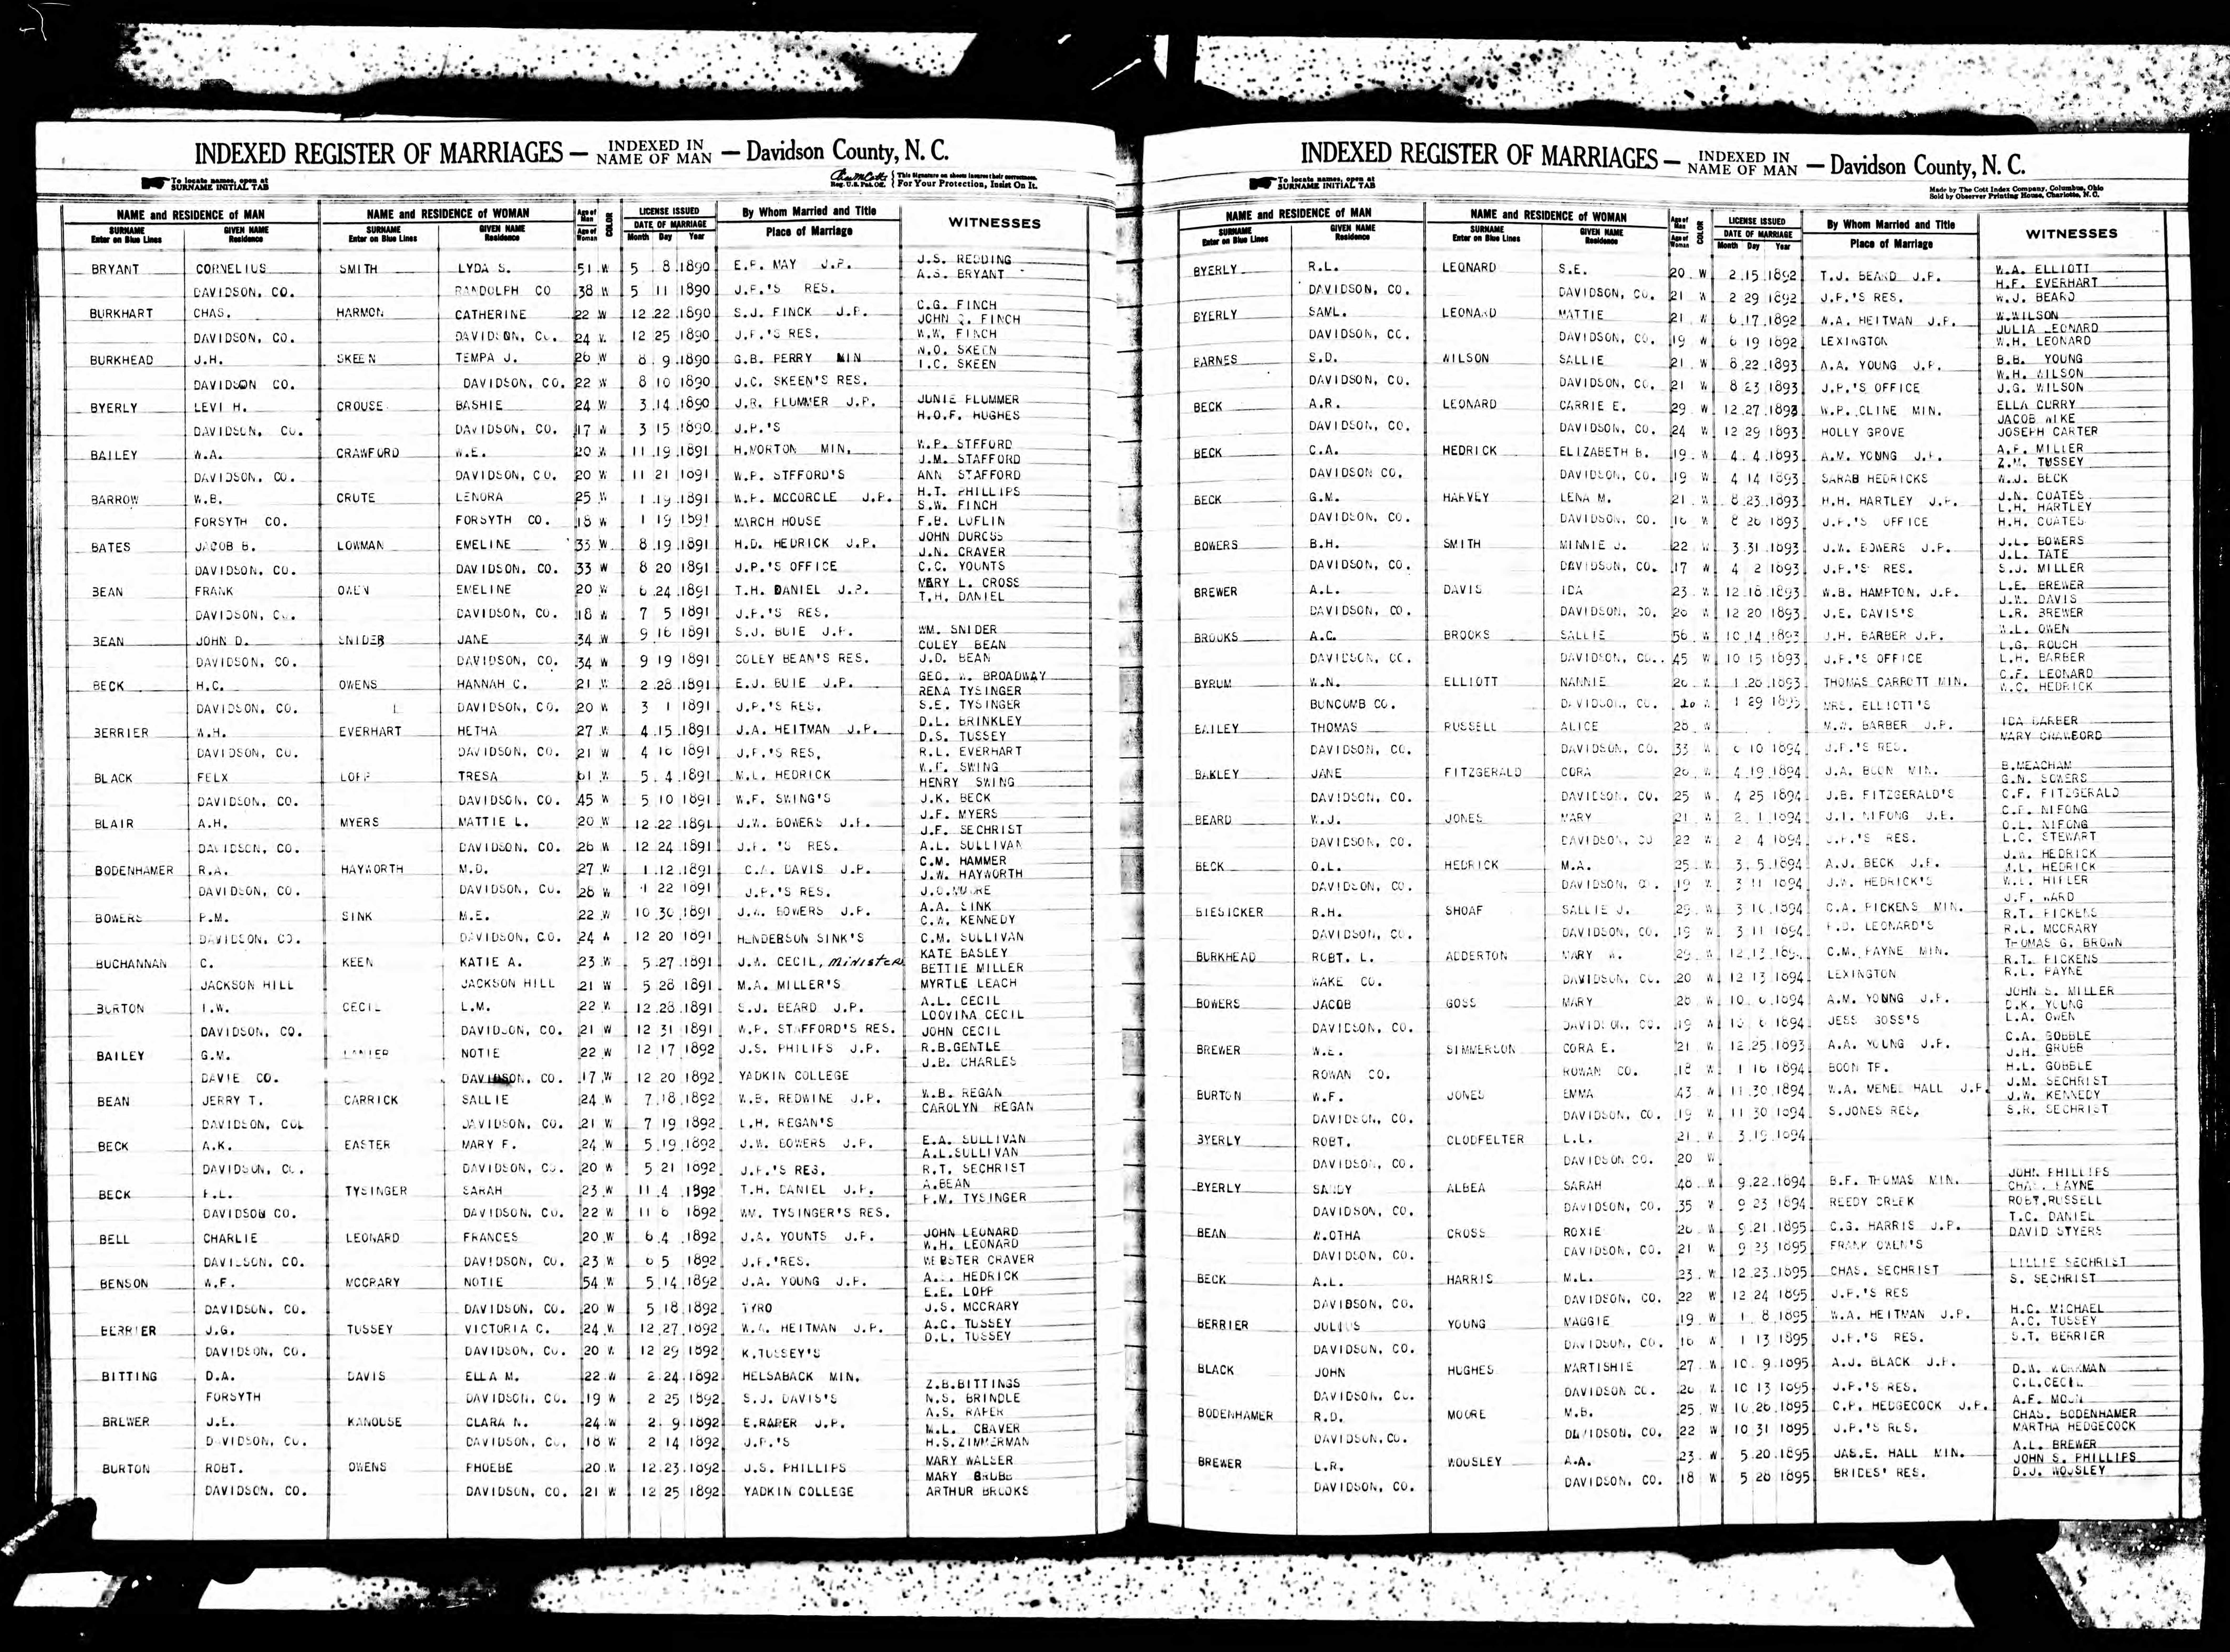 INDEXED REGISTER OF MARRIAGES — INDEXED IN NAME OF MAN — Davidson County, N. C.
To locate names, open at SURNAME INITIAL TAB
Reg. U.S. Pat. Off. This Signature on sheets insures their correctness. For Your Protection, Insist On It.
NAME and RESIDENCE of MAN NAME and RESIDENCE of WOMAN Age of Man COLOR LICENSE ISSUED By Whom Married and Title WITNESSES
SURNAME Enter on Blue Lines GIVEN NAME Residence SURNAME Enter on Blue Lines GIVEN NAME Residence Age of Woman DATE OF MARRIAGE Month Day Year Place of Marriage
BRYANT CORNELIUS SMITH LYDA S. 51 W 5 8 1890 E.P. MAY J.P. J.S. REDDING
A.S. BRYANT
DAVIDSON, CO. RANDOLPH CO 38 W 5 11 1890 J.P.'S RES.
BURKHART CHAS. HARMON CATHERINE 22 W 12 22 1890 S.J. FINCK J.P. C.G. FINCH
JOHN FINCH
DAVIDSON, CO. DAVIDSON, CO. 24 W 12 25 1890 J.P.'S RES. W.W. FINCH
BURKHEAD J.H. SKEEN TEMPA J. 26 W 8 9 1890 G.B. PERRY MIN N.O. SKEEN
I.C. SKEEN
DAVIDSON CO. DAVIDSON, CO. 22 W 8 10 1890 J.C. SKEEN'S RES.
BYERLY LEVI H. CROUSE BASHIE 24 W 3 14 1890 J.R. PLUMMER J.P. JUNIE PLUMMER
H.O.F. HUGHES
DAVIDSON, CO. DAVIDSON, CO. 17 W 3 15 1890 J.P.'S
BAILEY W.A. CRAWFORD W.E. 20 W 11 19 1891 H.MORTON MIN. W.P. STFFORD
J.M. STAFFORD
DAVIDSON, CO. DAVIDSON, CO. 20 W 11 21 1891 W.P. STFFORD'S ANN STAFFORD
BARROW W.B. CRUTE LENORA 25 W 1 19 1891 W.P. MCCORCLE J.P. H.T. PHILLIPS
S.W. FINCH
FORSYTH CO. FORSYTH CO. 18 W 1 19 1891 MARCH HOUSE F.B. LOFLIN
BATES JACOB B. LOWMAN EMELINE 33 W 8 19 1891 H.D. HEDRICK J.P. JOHN DURCSS
J.N. CRAVER
DAVIDSON, CO. DAVIDSON, CO. 33 W 8 20 1891 J.P.'S OFFICE C.C. YOUNTS
BEAN FRANK OWEN EMELINE 20 W 6 24 1891 T.H. DANIEL J.P. MARY L. CROSS
T.H. DANIEL
DAVIDSON, CO. DAVIDSON, CO. 18 W 7 5 1891 J.P.'S RES.
BEAN JOHN D. SNIDER JANE 34 W 9 16 1891 S.J. BUIE J.P. WM. SNIDER
COLEY BEAN
DAVIDSON, CO. DAVIDSON, CO. 34 W 9 19 1891 COLEY BEAN'S RES. J.D. BEAN
BECK H.C. OWENS HANNAH C. 21 W 2 28 1891 E.J. BUIE J.P. GEO. W. BROADWAY
RENA TYSINGER
DAVIDSON, CO. DAVIDSON, CO. 20 W 3 1 1891 J.P.'S RES. S.E. TYSINGER
BERRIER W.H. EVERHART HETHA 27 W 4 15 1891 J.A. HEITMAN J.P. D.L. BRINKLEY
D.S. TUSSEY
DAVIDSON, CO. DAVIDSON, CO. 21 W 4 16 1891 J.P.'S RES. R.L. EVERHART
BLACK FELX LOPP TRESA 61 W 5 4 1891 M.L. HEDRICK W.F. SWING
HENRY SWING
DAVIDSON, CO. DAVIDSON, CO. 45 W 5 10 1891 W.F. SWING'S J.K. BECK
BLAIR A.H. MYERS MATTIE L. 20 W 12 22 1891 J.W. BOWERS J.P. J.F. MYERS
J.F. SECHRIST
DAVIDSON, CO. DAVIDSON, CO. 26 W 12 24 1891 J.P. 'S RES. A.L. SULLIVAN
BODENHAMER R.A. HAYWORTH M.D. 27 W 1 12 1891 C.A. DAVIS J.P. C.M. HAMMER
J.W. HAYWORTH
DAVIDSON, CO. DAVIDSON, CO. 28 W 1 22 1891 J.P.'S RES. J.O.MOORE
BOWERS P.M. SINK M.E. 22 W 10 30 1891 J.W. BOWERS J.P. A.A. SINK
C.W. KENNEDY
DAVIDSON, CO. DAVIDSON, CO. 24 W 12 20 1891 HENDERSON SINK'S C.M. SULLIVAN
BUCHANNAN C. KEEN KATIE A. 23 W 5 27 1891 J.W. CECIL, Minister KATE BASLEY
BETTIE MILLER
JACKSON HILL JACKSON HILL 21 W 5 28 1891 M.A. MILLER'S MYRTLE LEACH
BURTON I.W. CECIL L.M. 22 W 12 28 1891 S.J. BEARD J.P. A.L. CECIL
LOOVINA CECIL
DAVIDSON, CO. DAVIDSON, CO. 21 W 12 31 1891 W.P. STAFFORD'S RES. JOHN CECIL
BAILEY G.M. LANIER NOTIE 22 W 12 17 1892 J.S. PHILIPS J.P. R.B.GENTLE
J.B. CHARLES
DAVIE CO. DAVIDSON, CO. 17 W 12 20 1892 YADKIN COLLEGE
BEAN JERRY T. CARRICK SALLIE 24 W 7 18 1892 W.B. REDWINE J.P. W.B. REGAN
CAROLYN REGAN
DAVIDSON, COL DAVIDSON, CO. 21 W 7 19 1892 L.H. REGAN'S
BECK A.K. EASTER MARY F. 24 W 5 19 1892 J.W. BOWERS J.P. E.A. SULLIVAN
A.L.SULLIVAN
DAVIDSON, CO. DAVIDSON, CO. 20 W 5 21 1892 J.P.'S RES. R.T. SECHRIST
BECK F.L. TYSINGER SARAH 23 W 11 4 1892 T.H. DANIEL J.P. A.BEAN
P.M. TYSINGER
DAVIDSON CO. DAVIDSON, CO. 22 W 11 6 1892 WM. TYSINGER'S RES.
BELL CHARLIE LEONARD FRANCES 20 W 6 4 1892 J.A. YOUNTS J.P. JOHN LEONARD
W.H. LEONARD
DAVIDSON, CO. DAVIDSON, CO. 23 W 6 5 1892 J.P.'RES. WEBSTER CRAVER
BENSON W.F. MCCRARY NOTIE 54 W 5 14 1892 J.A. YOUNG J.P. HEDRICK
E.E. LOPP
DAVIDSON, CO. DAVIDSON, CO. 20 W 5 18 1892 TYRO J.S. MCCRARY
BERRIER J.G. TUSSEY VICTORIA C. 24 W 12 27 1892 W.A. HEITMAN J.P. A.C. TUSSEY
D.L. TUSSEY
DAVIDSON, CO. DAVIDSON, CO. 20 W 12 29 1892 K.TUSSEY'S
BITTING D.A. DAVIS ELLA M. 22 W 2 24 1892 HELSABACK MIN. Z.B.BITTINGS
FORSYTH DAVIDSON, CO. 19 W 2 25 1892 S.J. DAVIS'S N.S. BRINDLE
A.S. RAPER
BREWER J.E. KANOUSE CLARA N. 24 W 2 9 1892 E.RAPER J.P. M.L. CRAVER
DAVIDSON, CO. DAVIDSON, CO. 18 W 2 14 1892 J.P.'S H.S.ZIMMERMAN
BURTON ROBT. OWENS PHOEBE 20 W 12 23 1892 J.S. PHILLIPS MARY WALSER
MARY GRUBB
DAVIDSON, CO. DAVIDSON, CO. 21 W 12 25 1892 YADKIN COLLEGE ARTHUR BROOKS
INDEXED REGISTER OF MARRIAGES — INDEXED IN NAME OF MAN — Davidson County, N. C.
To locate names, open at SURNAME INITIAL TAB
Made by The Cott Index Company, Columbus, Ohio
Sold by Observer Printing House, Charlotte, N. C.
NAME and RESIDENCE of MAN NAME and RESIDENCE of WOMAN Age of Man COLOR LICENSE ISSUED By Whom Married and Title WITNESSES
SURNAME Enter on Blue Lines GIVEN NAME Residence SURNAME Enter on Blue Lines GIVEN NAME Residence Age of Woman DATE OF MARRIAGE Month Day Year Place of Marriage
BYERLY R.L. LEONARD S.E. 20 W 2 15 1892 T.J. BEARD J.P. W.A. ELLIOTT
H.F. EVERHART
DAVIDSON, CO. DAVIDSON, CO. 21 W 2 29 1892 J.P.'S RES. W.J. BEARD
BYERLY SAML. LEONARD MATTIE 21 W 6 17 1892 W.A. HEITMAN J.P. W.WILSON
JULIA LEONARD
DAVIDSON, CO. DAVIDSON, CO. 19 W 6 19 1892 LEXINGTON W.H. LEONARD
BARNES S.D. WILSON SALLIE 21 W 8 22 1893 A.A. YOUNG J.P. B.B. YOUNG
W.H. WILSON
DAVIDSON, CO. DAVIDSON, CO. 21 W 8 23 1893 J.P.'S OFFICE J.G. WILSON
BECK A.R. LEONARD CARRIE E. 29 W 12 27 1893 W.P. CLINE MIN. ELLA CURRY
JACOB WIKE
DAVIDSON, CO. DAVIDSON, CO. 24 W 12 29 1893 HOLLY GROVE JOSEPH CARTER
BECK C.A. HEDRICK ELIZABETH B. 19 W 4 4 1893 A.M. YOUNG J.P. A.F. MILLER
Z.M. TUSSEY
DAVIDSON CO. DAVIDSON, CO. 19 W 4 14 1893 SARAB HEDRICKS W.J. BECK
BECK G.M. HARVEY LENA M. 21 W 8 23 1893 H.H. HARTLEY J.P. J.N. COATES
L.H. HARTLEY
DAVIDSON, CO. DAVIDSON, CO. 16 W 8 26 1893 J.P.'S OFFICE H.H. COATES
BOWERS B.H. SMITH MINNIE J. 22 W 3 31 1893 J.W. BOWERS J.P. J.L. BOWERS
J.L. TATE
DAVIDSON, CO. DAVIDSON, CO. 17 W 4 2 1893 J.P.'S RES. S.J. MILLER
BREWER A.L. DAVIS IDA 23 W 12 18 1893 W.B. HAMPTON, J.P. L.E. BREWER
J.W. DAVIS
DAVIDSON, CO. DAVIDSON, CO. 20 W 12 20 1893 J.E. DAVIS'S L.R. BREWER
BROOKS A.C. BROOKS SALLIE 56 W 10 14 1893 J.H. BARBER J.P. W.L. OWEN
L.G. ROUCH
DAVIDSON, CO. DAVIDSON, CO. 45 W 10 15 1893 J.P.'S OFFICE L.H. BARBER
BYRUM W.N. ELLIOTT NANNIE 26 W 1 28 1893 THOMAS CARROTT MIN. C.F. LEONARD
W.C. HEDRICK
BUNCOMB CO. DAVIDSON, CO. 20 W 1 29 1893 MRS. ELLIOTT'S
BAILEY THOMAS RUSSELL ALICE 28 W M.W. BARBER J.P. IDA BARBER
MARY CRAWFORD
DAVIDSON, CO. DAVIDSON, CO. 33 W 6 10 1894 J.P.'S RES.
BAKLEY JANE FITZGERALD CORA 26 W 4 19 1894 J.A. BOON MIN. B.MEACHAM
G.N. SOWERS
DAVIDSON, CO. DAVIDSON, CO. 25 W 4 25 1894 J.B. FITZGERALD'S C.F. FITZGERALD
BEARD W.J. JONES MARY 21 W 2 1 1894 J.I. NIFONG J.E. C.F. NIFONG
O.L. NIFONG
DAVIDSON, CO. DAVIDSON, CO 22 W 2 4 1894 J.P.'S RES. L.C. STEWART
BECK O.L. HEDRICK M.A. 25 W 3 5 1894 A.J. BECK J.P. J.W. HEDRICK
J.L. HEDRICK
DAVIDSON, CO. DAVIDSON, CO. 19 W 3 11 1894 J.W. HEDRICK'S W.L. HIFLER
BIESICKER R.H. SHOAF SALLIE J. 29 W 3 10 1894 C.A. PICKENS MIN. J.F. WARD
R.T. PICKENS
DAVIDSON, CO. DAVIDSON, CO. 19 W 3 11 1894 F.D. LEONARD'S R.L. MCCRARY
BURKHEAD ROBT. L. ADDERTON MARY W. 29 W 12 13 C.M. PAYNE MIN. THOMAS G. BROWN
R.T. PICKENS
WAKE CO. DAVIDSON, CO. 20 W 12 13 1894 LEXINGTON R.L. PAYNE
BOWERS JACOB GOSS MARY 28 W 10 6 1894 A.M. YOUNG J.P. JOHN S. MILLER
D.K. YOUNG
DAVIDSON, CO. DAVIDSON, CO. 19 W 10 6 1894 JESS GOSS'S L.A. OWEN
BREWER W.E. SIMMERSON CORA E. 21 W 12 25 1893 A.A. YOUNG J.P. C.A. GOBBLE
J.H. GRUBB
ROWAN CO. ROWAN CO. 18 W 1 16 1894 BOON TP. H.L. GOBBLE
BURTON W.F. JONES EMMA 43 W 11 30 1894 W.A. MENDENHALL J.P. J.M. SECHRIST
J.W. KENNEDY
DAVIDSON, CO. DAVIDSON, CO. 19 W 11 30 1894 S.JONES RES. S.R. SECHRIST
BYERLY ROBT. CLODFELTER L.L. 21 W 3 19 1894
DAVIDSON, CO. DAVIDSON CO. 20 W
BYERLY SANDY ALBEA SARAH 48 W 9 22 1894 B.F. THOMAS MIN. JOHN PHILLIPS
CHAS. PAYNE
DAVIDSON, CO. DAVIDSON, CO. 35 W 9 23 1894 REEDY CREEK ROBT.RUSSELL
BEAN W.OTHA CROSS ROXIE 26 W 9 21 1895 C.G. HARRIS J.P. T.C. DANIEL
DAVID STYERS
DAVIDSON, CO. DAVIDSON, CO. 21 W 9 23 1895 FRANK OWEN'S
BECK A.L. HARRIS M.L. 23 W 12 23 1895 CHAS. SECHRIST LILLIE SECHRIST
S. SECHRIST
DAVIDSON, CO. DAVIDSON, CO. 22 W 12 24 1895 J.P.'S RES
BERRIER JULIUS YOUNG MAGGIE 19 W 1 8 1895 W.A. HEITMAN J.P. H.C. MICHAEL
A.C. TUSSEY
DAVIDSON, CO. DAVIDSON, CO. 16 W 1 13 1895 J.P.'S RES. S.T. BERRIER
BLACK JOHN HUGHES MARTISHIE 27 W 10 9 1895 A.J. BLACK J.P. D.W. WORKMAN
C.L.CECIL
DAVIDSON, CO. DAVIDSON CO. 20 W 10 13 1895 J.P.'S RES. A.F. MOON
BODENHAMER R.D. MOORE M.B. 25 W 10 28 1895 C.P. HEDGECOCK J.P. CHAS. BODENHAMER
MARTHA HEDGECOCK
DAVIDSON,CO. DAVIDSON, CO. 22 W 10 31 1895 J.P.'S RES.
BREWER L.R. WOUSLEY A.A. 23 W 5 20 1895 JAS.E. HALL MIN. A.L. BREWER
JOHN S. PHILLIPS
DAVIDSON, CO. DAVIDSON, CO. 18 W 5 26 1895 BRIDES' RES. D.J. WOUSLEY